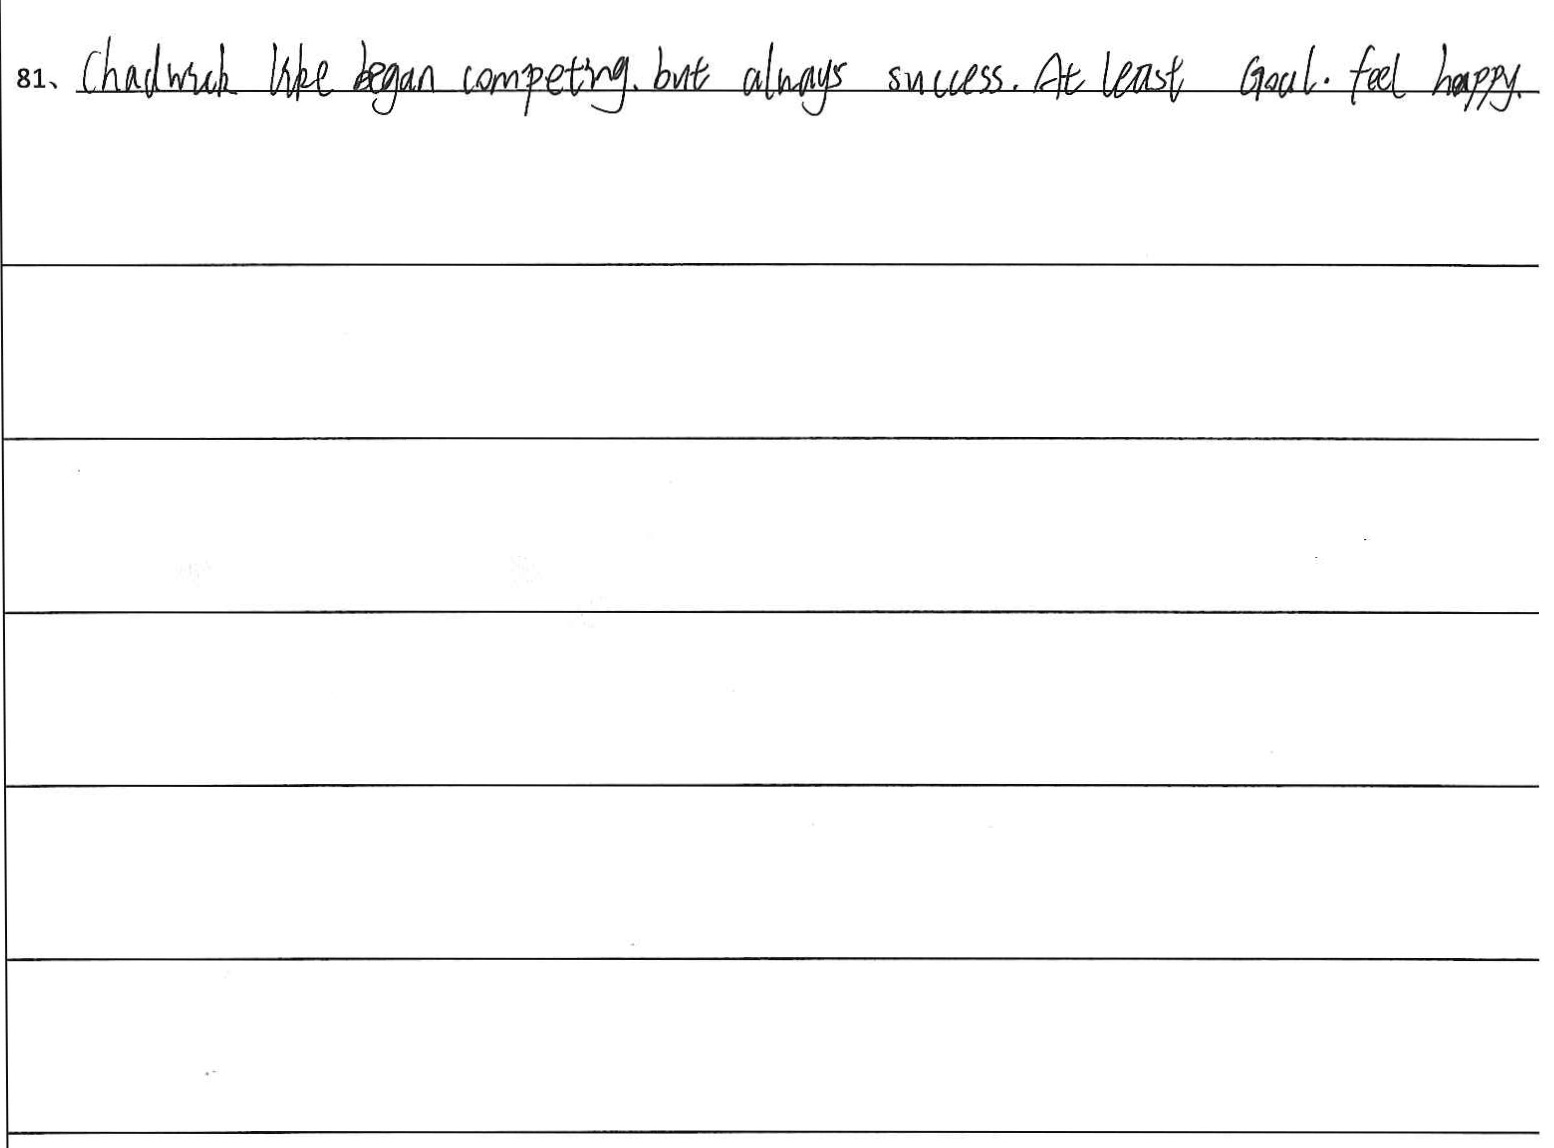 81、Chadwick like began competing. but always success. At least Goal. feel happy.